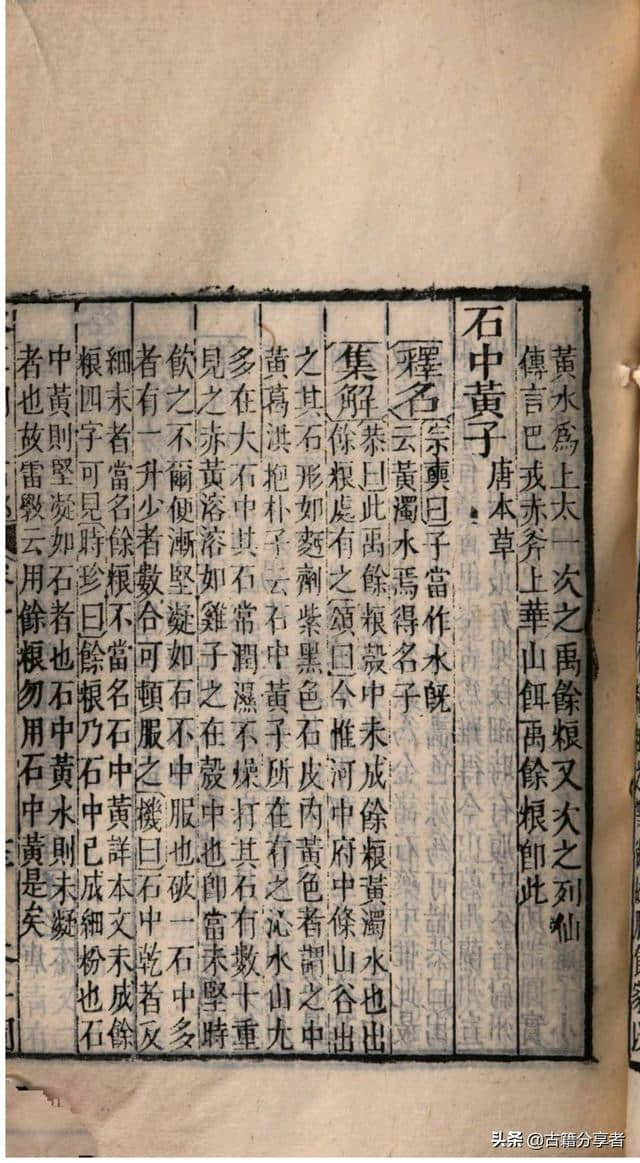 黃水爲上太一次之禹餘粮又次之列仙
傳言巴戎赤斧上華山餌禹餘粮卽此
石中黃子唐本草
釋名宗奭曰子當作水旣
云黃濁水焉得名子
集解恭曰此禹餘粮殼中未成餘粮黃濁水也出
餘粮處有之頌曰今惟河中府中條山谷出
之其石形如麪劑紫黑色石皮內黃色者謂之中
黃葛洪抱朴子云石中黃子所在有之沁水山尤
多在大石中其石常潤濕不燥打其石有數十重
見之赤黃溶溶如雞子之在殼中也卽當未堅時
飮之不爾便漸堅凝如石不中服也破一石中多
者有一升少者數合可頓服之機曰石中乾者及
細末者當名餘粮不當名石中黃詳本文未成餘
粮四字可見時珍曰餘粮乃石中已成細粉也石
中黃則堅凝如石者也石中黃水則未凝
者也故雷斅云用餘粮勿用石中黃是矣
头条 @古籍分享者